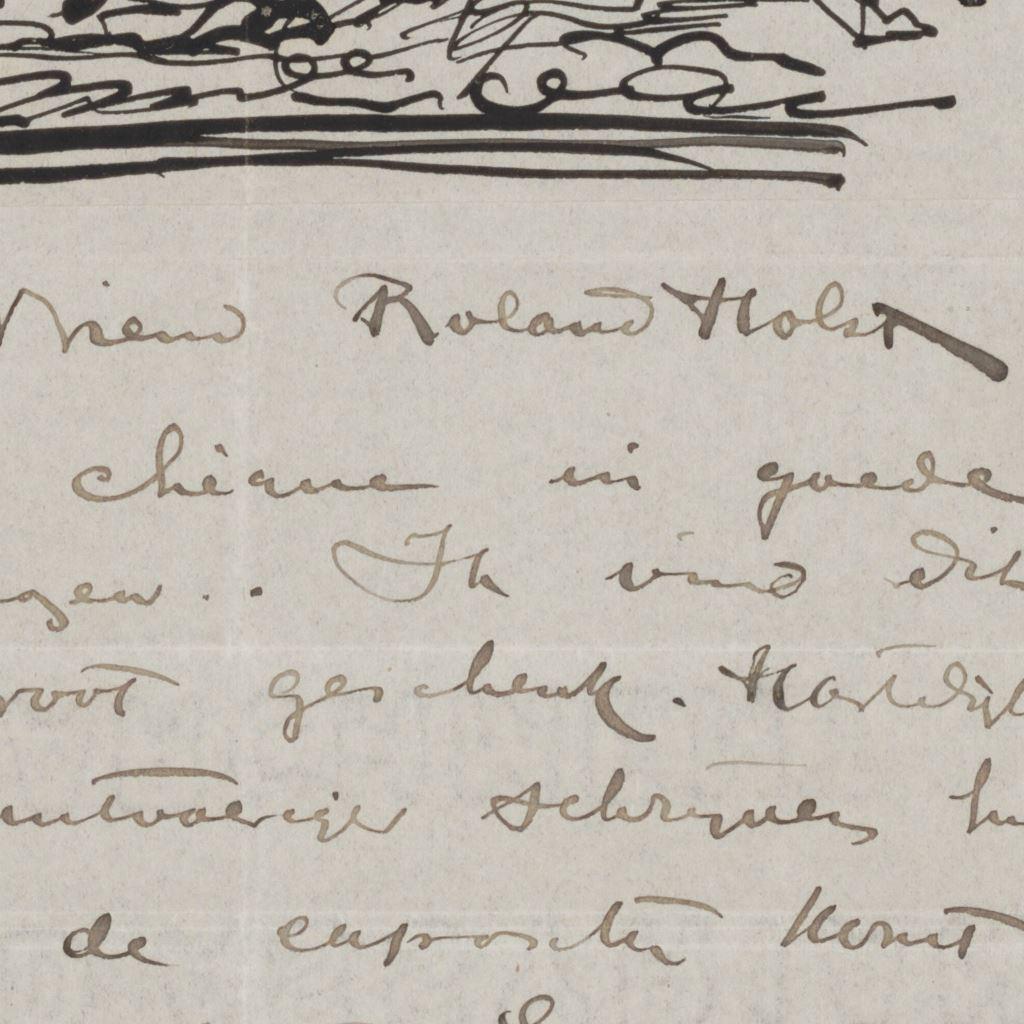 Vriend Roland Holst
chèque in goede
gen.. Ik vind dit
root geschenk. Hartelijk
uitvoeriger schrijven
de expositie komt